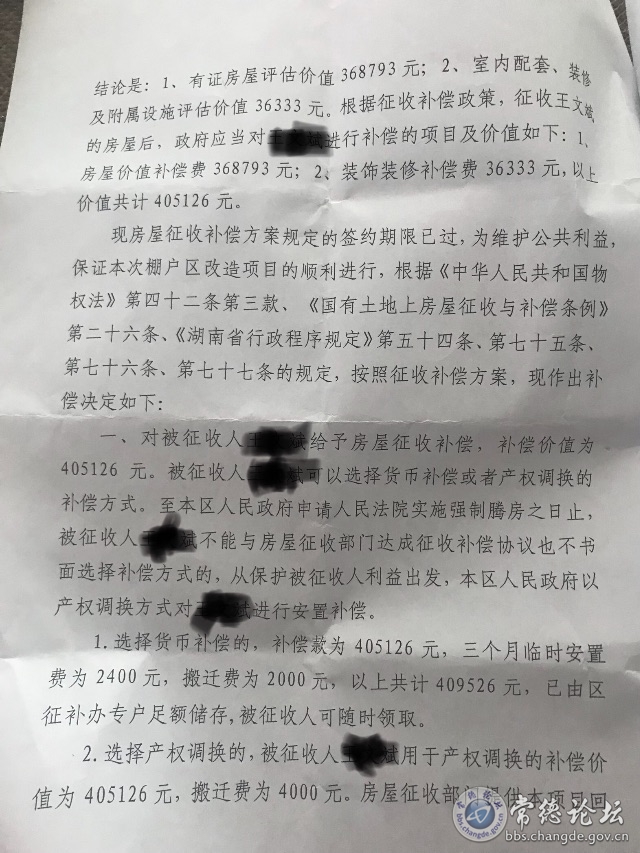 结论是：1、有证房屋评估价值 368793 元；2、室内配套、装修
及附属设施评估价值 36333 元。根据征收补偿政策，征收王文斌
的房屋后，政府应当对 斌进行补偿的项目及价值如下：1、
房屋价值补偿费 368793 元；2、装饰装修补偿费 36333 元，以上
价值共计 405126 元。
现房屋征收补偿方案规定的签约期限已过，为维护公共利益，
保证本次棚户区改造项目的顺利进行，根据《中华人民共和国物
权法》第四十二条第三款、《国有土地上房屋征收与补偿条例》
第二十六条、《湖南省行政程序规定》第五十四条、第七十五条、
第七十六条、第七十七条的规定，按照征收补偿方案，现作出补
偿决定如下：
一、对被征收人 给予房屋征收补偿，补偿价值为
405126 元。被征收人 斌可以选择货币补偿或者产权调换的
补偿方式。至本区人民政府申请人民法院实施强制腾房之日止，
被征收人 斌不能与房屋征收部门达成征收补偿协议也不书
面选择补偿方式的，从保护被征收人利益出发，本区人民政府以
产权调换方式对 斌进行安置补偿。
1.选择货币补偿的，补偿款为 405126 元，三个月临时安置
费为 2400 元，搬迁费为 2000 元，以上共计 409526 元，已由区
征补办专户足额储存，被征收人可随时领取。
2.选择产权调换的，被征收人 斌用于产权调换的补偿价
值为 405126 元，搬迁费为 4000 元。房屋征收部 提供本项目回
常德论坛
bbs.changde.gov.cn